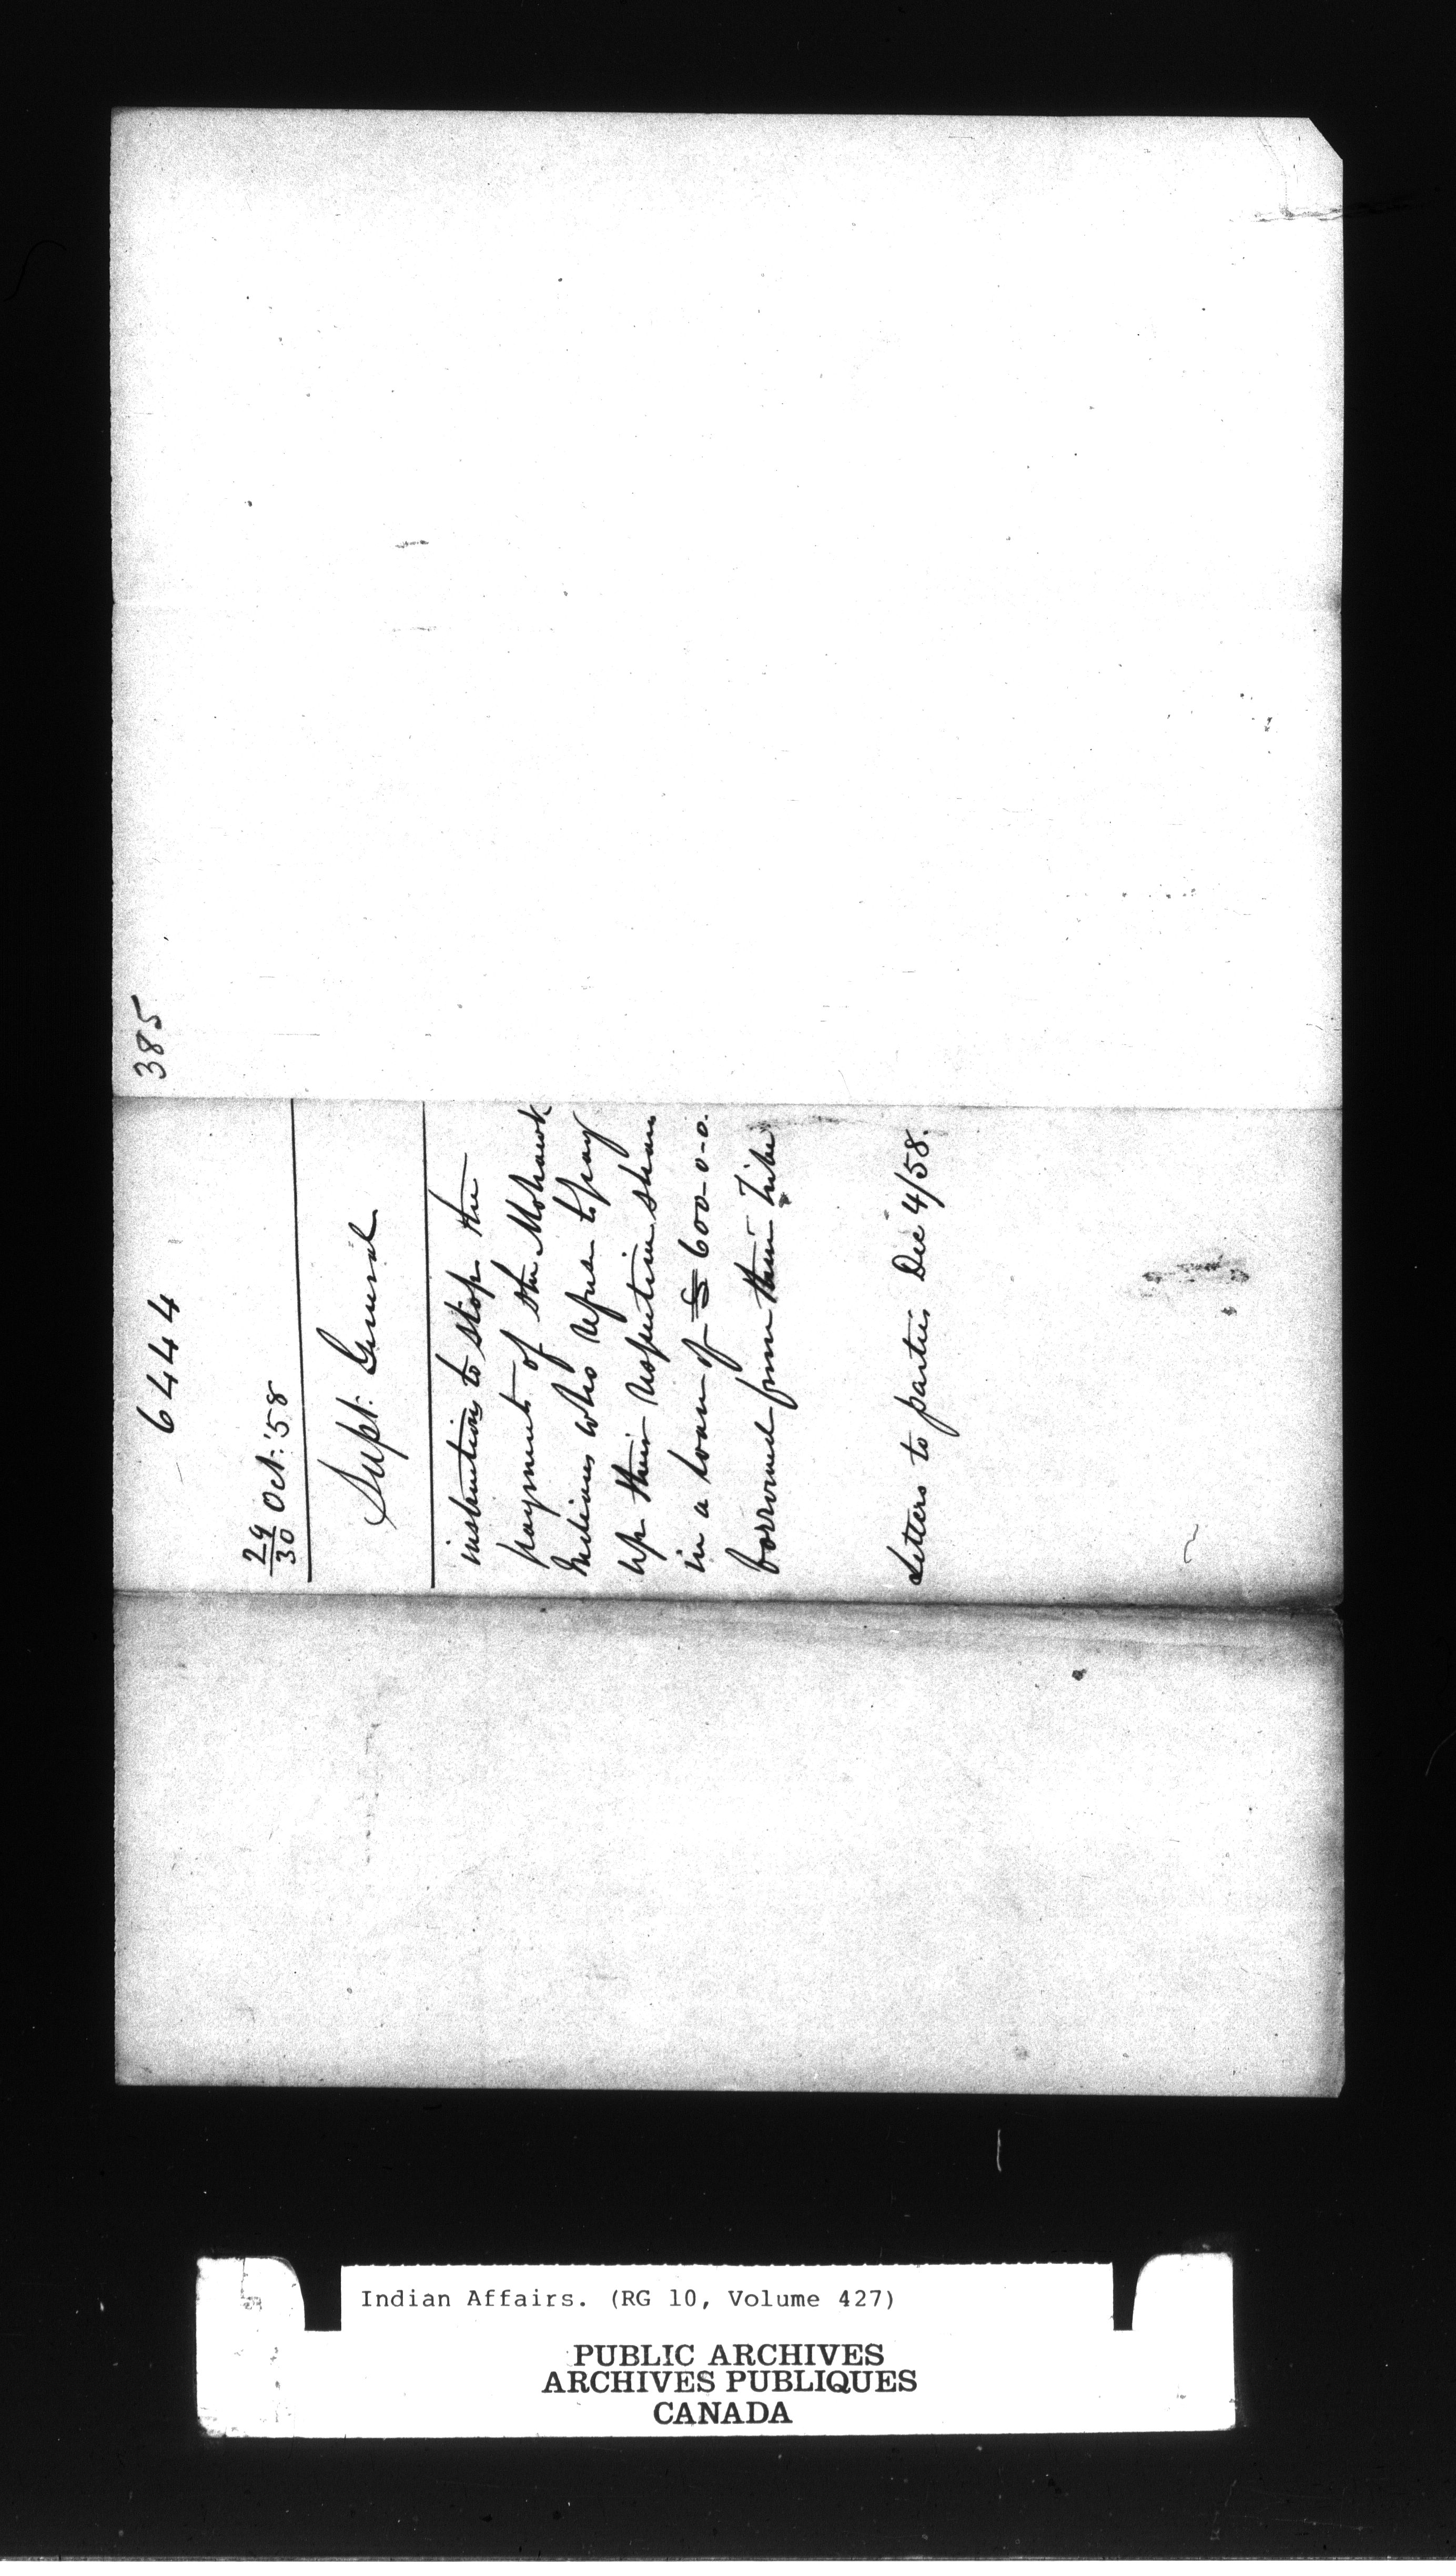 385
6444
29/30 Oct. '58
Supt. General
instructions to stop the
payments of the Mohawk
Indians who refuse to pay
up their respective shares
in a loan of £600-0-0.
borrowed from their Tribe
Letters to parties Dec 4/58.
Indian Affairs. (RG 10, Volume 427)
PUBLIC ARCHIVES
ARCHIVES PUBLIQUES
CANADA